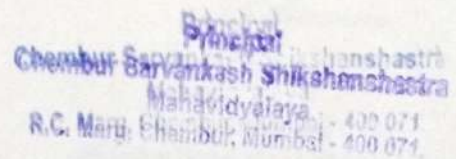 Principal
Chembur Sarvankash Shikshanshastra
Mahavidyalaya
R.C. Marg, Chembur, Mumbai - 400 071.